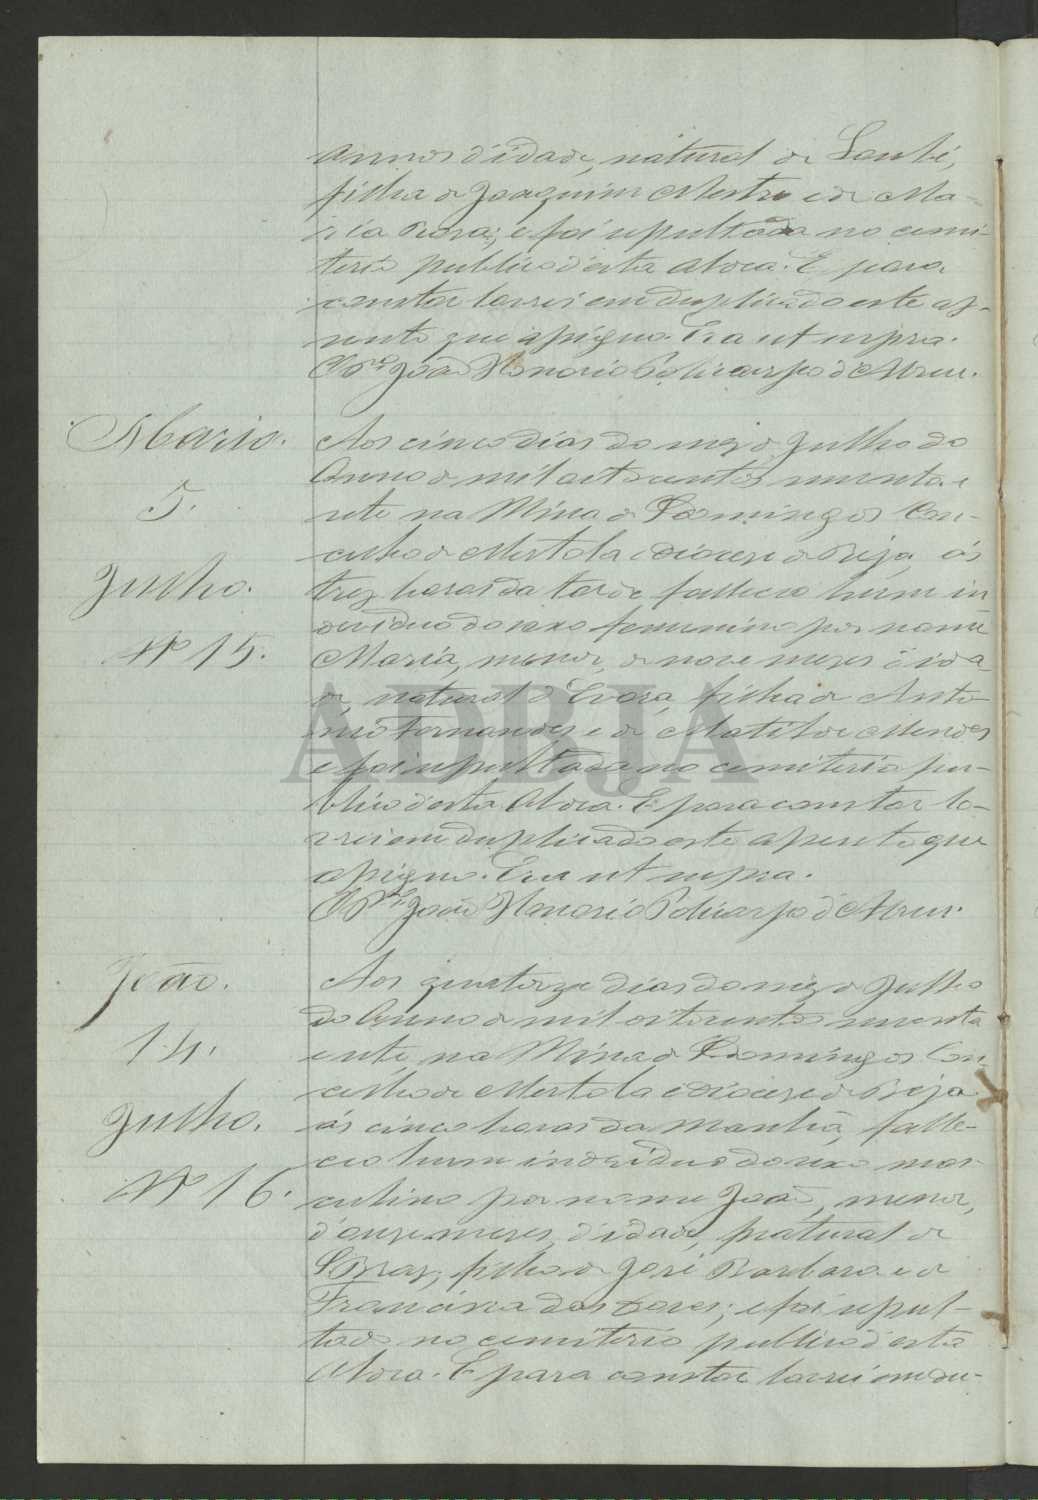 annos d'idade, natural de Loulé,
filha de Joaquim Mestre e de Ma-
ria Rosa; e foi sepultada no cemi-
terio publico d'esta Aldea. E para
constar lavrei em duplicado este as-
sento que assigno. Era ut supra.
O P.e João Honorio Policarpo d'Abreu.
Maria.
5.
Julho.
Nº 15.
Aos cinco dias do mez de Julho do
Anno de mil oitocentos noventa e
sete na Mina de S. Domingos Con-
celho de Mertola e diocese de Beja, ás
trez horas da tarde falleceo hum in
dividuo do sexo femenino por nome
Maria, menor, de nove mezes d'ida-
de, natural d'Evora, filha de Anto-
nio Fernandes e de Matilde Mendes
e foi sepultada no cemiterio pu-
blico d'esta Aldea. E para constar la-
vrei em duplicado este assento que
assigno. Era ut supra.
O P.e João Honorio Policarpo d'Abreu.
João.
14.
Julho.
Nº 16.
Aos quatorze dias do mez de Julho
do Anno de mil oitocentos noventa
e sete, na Mina de S. Domingos Con-
celho de Mertola e diocese de Beja
ás cinco horas da manhã, falle-
ceo hum individuo do sexo mas-
culino por nome João, menor,
d'onze mezes d'idade, natural de
S. Braz, filho de José Barbara e de
Francisca das Dores; e foi sepul-
tado no cemiterio publico d'esta
Aldea. E para constar lavrei em du-
ADBJA